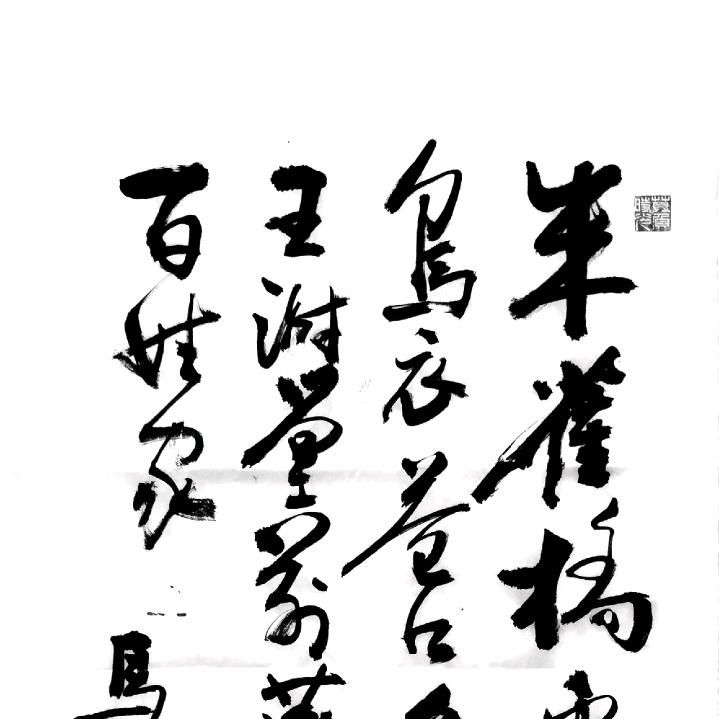 朱雀橋
烏衣巷口
王謝堂前燕
百姓家